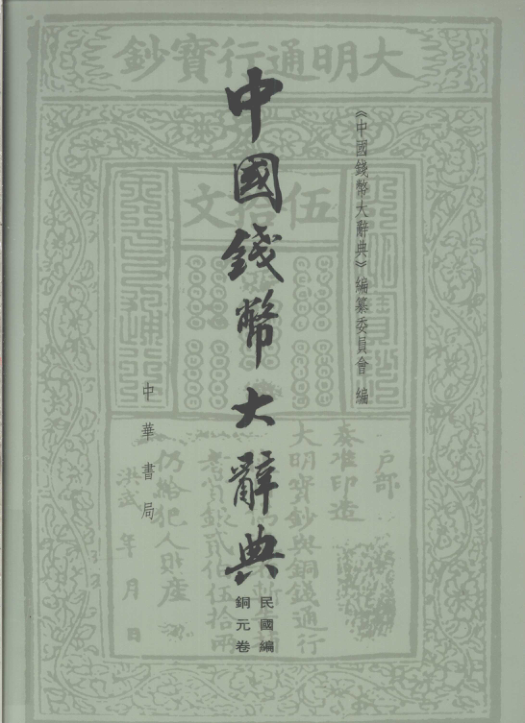 大明通行寶鈔
《中國錢幣大辭典》編纂委員會 編
中國錢幣大辭典
民國編
銅元卷
中華書局
伍拾文
戶部
奏准印造
大明寶鈔與銅錢通行
者賞銀貳佰伍拾兩
仍給犯人財產
洪武 年 月 日